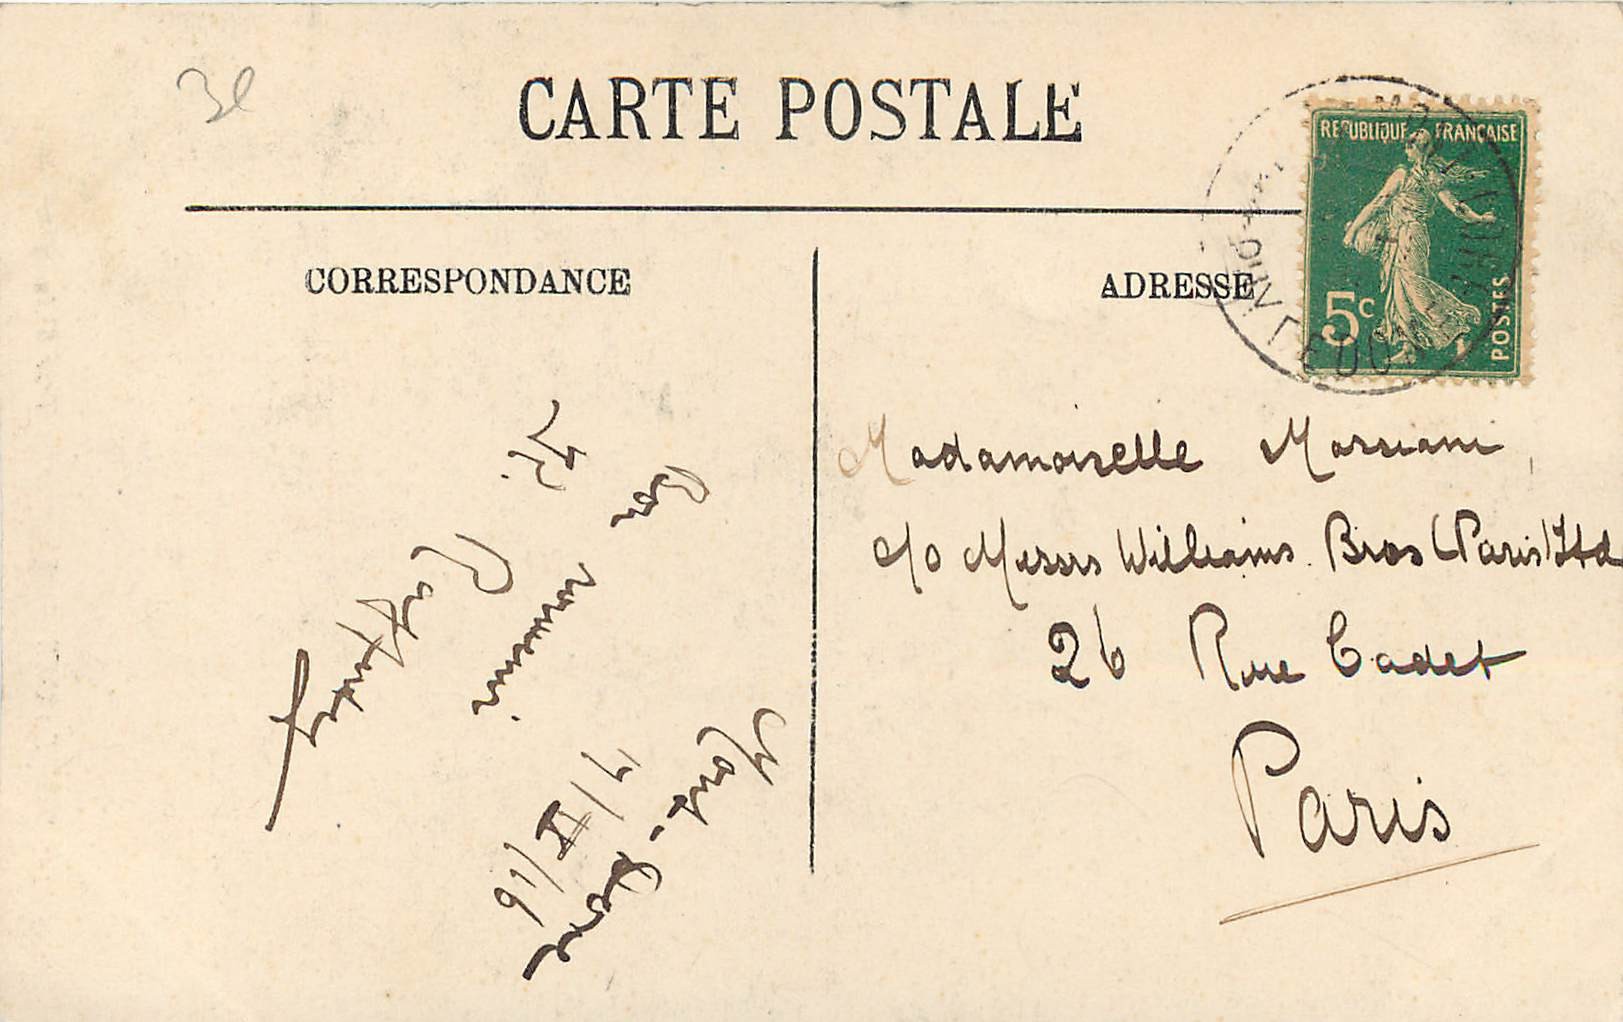 3e
CARTE POSTALE
REPUBLIQUE FRANÇAISE
5c
POSTES
CORRESPONDANCE
ADRESSE
Mont-Doré
7/X/16
Bon souvenir
Madamoiselle Marriani
c/o Messrs Williams Bros (Paris) Ltd
26 Rue Cadet
Paris